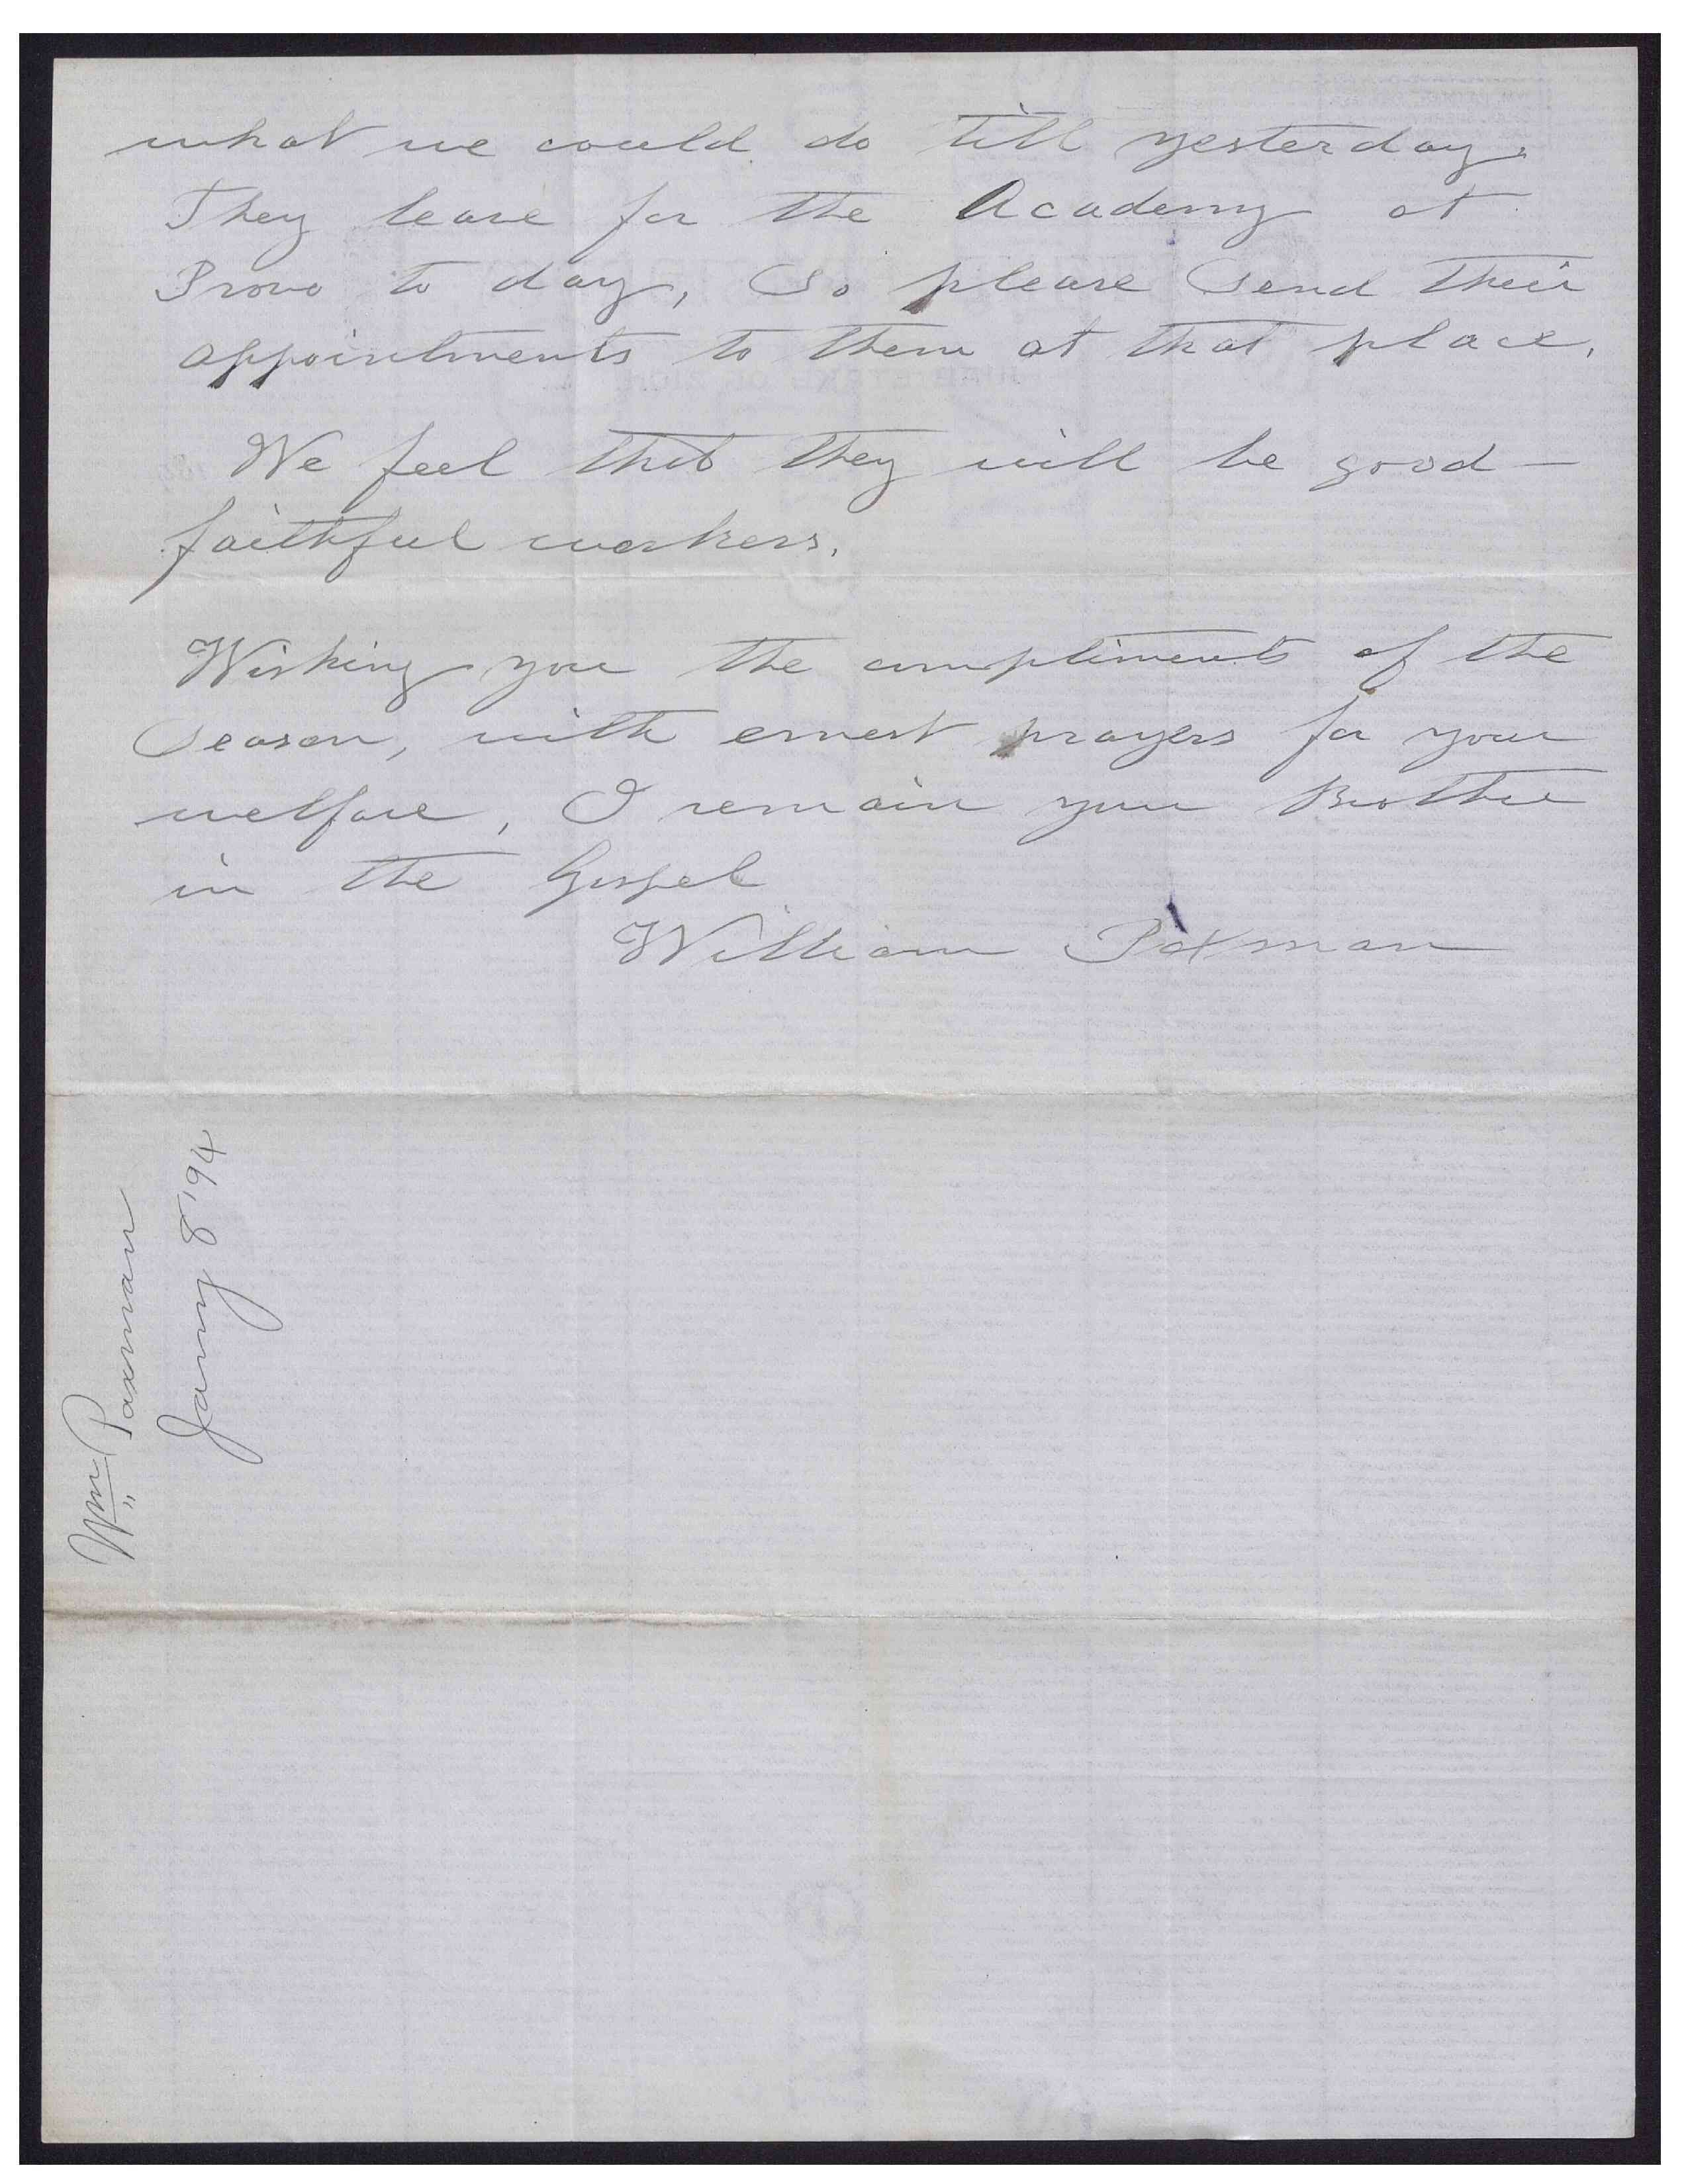 what we could do till yesterday.
They leave for the Academy at
Provo to day, So please Send their
appointments to them at that place.
We feel that they will be good —
faithful workers.
Wishing you the compliments of the
Season, with ernest prayers for your
welfare, I remain your Brother
in the Gospel
William Paxman
Wm Paxman
Janny 8 '94